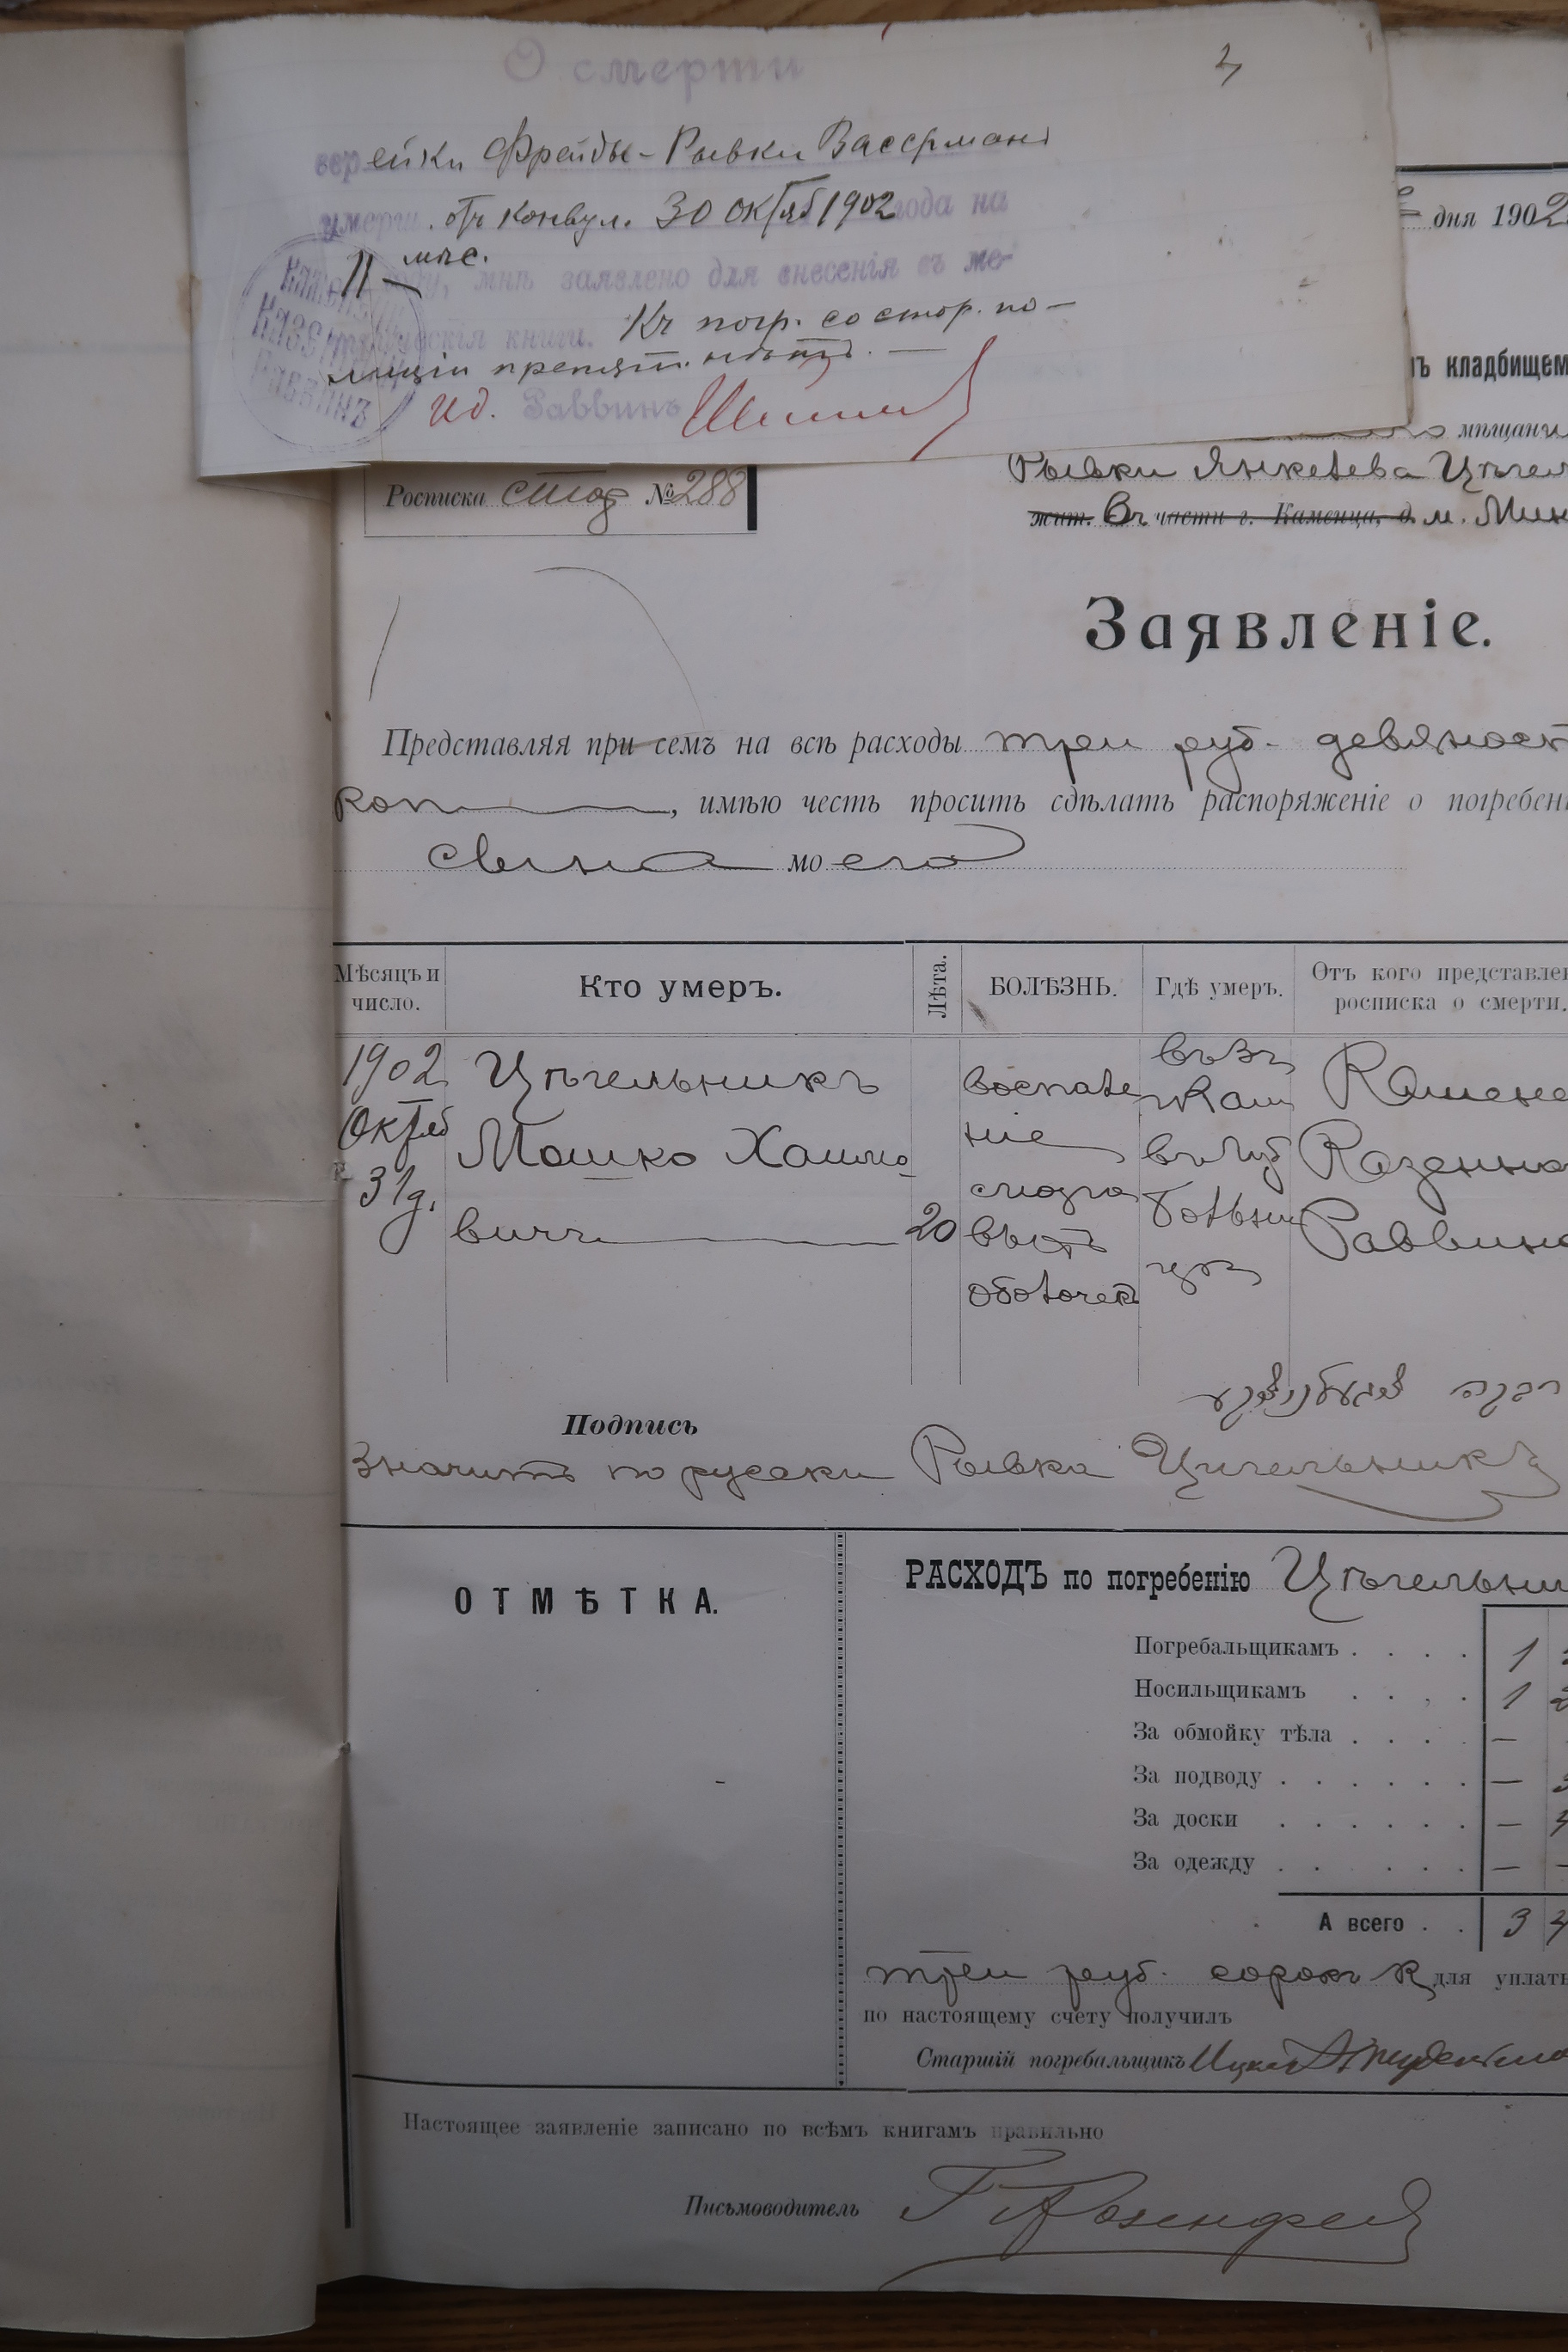 О смерти
2
еврейки Фрейды-Рывки Вассрманъ
умерш. отъ конвул. 30 Октяб 1902 года на
11 мѣс. году, мнѣ заявлено для внесенія въ ме-
трическія книги. Къ погр. со стор. по-
лиціи препят. нѣтъ. —
Ид. Раввинъ
Каменецкій Казенный Раввинъ
дня 1902
ъ кладбищем
мѣщани
Росписка №288
Рывки Янкелева Цѣгел
жит. Въ части г. Каменца, д. м. Мин
Заявленіе.
Представляя при семъ на всѣ расходы три руб. девяност
коп, имѣю честь просить сдѣлать распоряженіе о погребен
сына моего
Мѣсяцъ и число.
Кто умеръ.
Лѣта.
БОЛѢЗНЬ.
Гдѣ умеръ.
Отъ кого представле
росписка о смерти.
1902
Октяб
31 д.
Цѣгельникъ
Мошко Хаимо
вичъ
20
воспале
ніе
мозго
выхъ
оболочек
въ Губ
больни
цѣ
Камене
Казенна
Раввина
Подпись
Значитъ по русски Рывка Цигельникъ
ОТМѢТКА.
РАСХОДЪ по погребенію Цѣгельни
Погребальщикамъ . . . . 1
Носильщикамъ . . . . 1
За обмойку тѣла . . . . —
За подводу . . . . . . —
За доски . . . . . . —
За одежду . . . . . —
А всего . . 3
три руб. сорокъ к для уплаты
по настоящему счету получилъ
Старшій погребальщикъ Ицко
Настоящее заявленіе записано по всѣмъ книгамъ правильно
Письмоводитель Г Розенфел